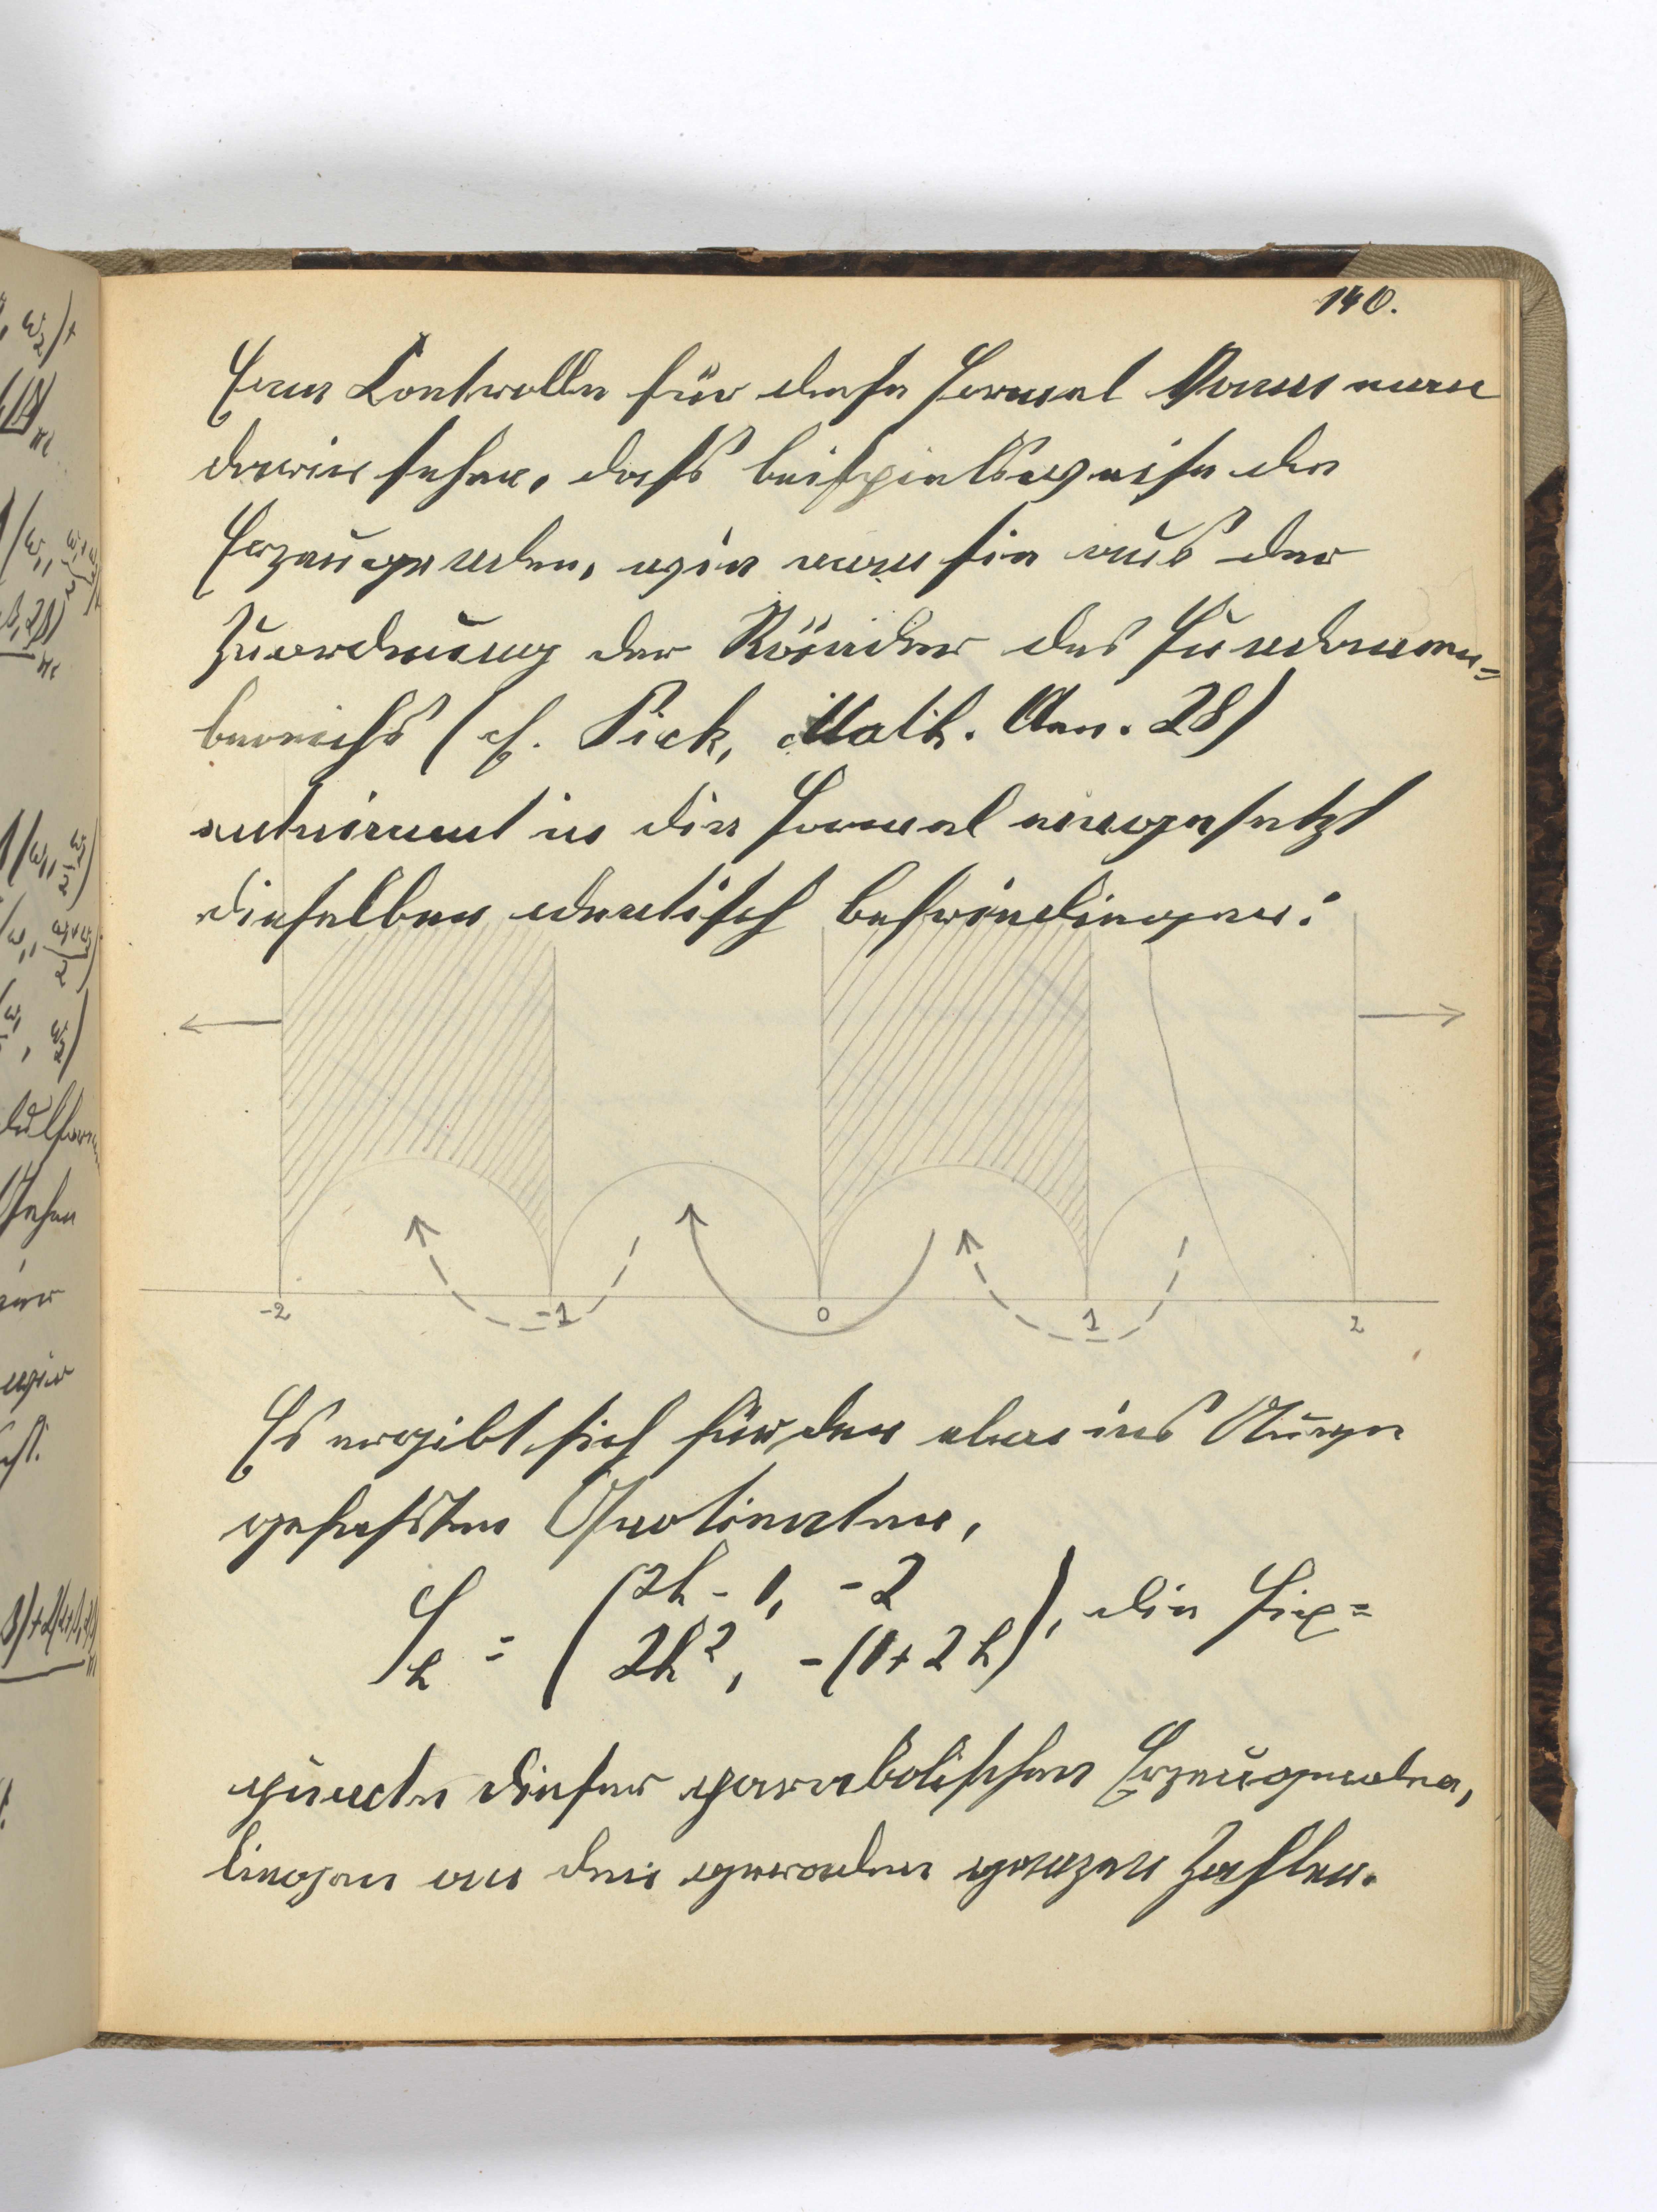 140.
Eine Kontrolle für diese Formel kann man
darin sehen, dass beispielsweise die
Erzeugenden, wie man sie aus der
Zuordnung der Ränder des Fundamen=
bereichs (cf. Pick, Math. Ann. 28)
entnimmt in die Formel eingesetzt
dieselben identisch befriedigen:
-2 -1 0 1 2
Es ergibt sich für den eben ins Auge
gefassten
S_h = (2h - 1, -2
2h², -(1+2h)), die Fix=
puncte dieser parabolischen Erzeugenden,
liegen an den geraden ganzen Zahlen.